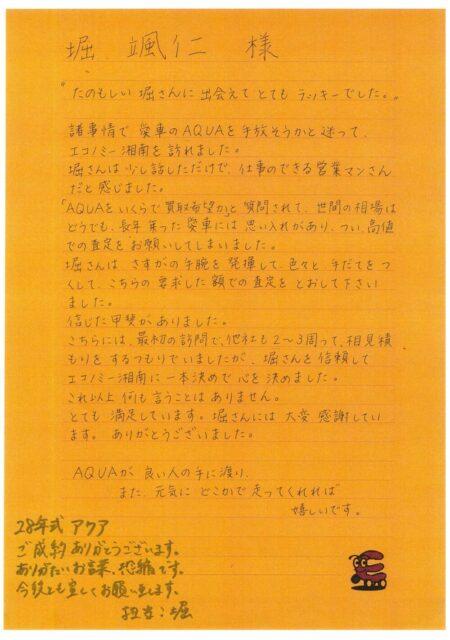 堀 颯仁 様
"たのもしい 堀さんに 出会えて とても ラッキーでした。"
諸事情で 愛車のAQUAを 手放そうかと 迷って、
エコノミー湘南を 訪れました。
堀さんは 少し話しただけで、仕事のできる営業マンさん
だと 感じました。
「AQUAをいくらで買取希望か」と 質問されて、世間の相場は
どうでも、長年 乗った 愛車には 思い入れがあり、つい、高値
での査定を お願いしてしまいました。
堀さんは、さすがの手腕を 発揮して、色々と 手だてを つ
くして、こちらの 要求した 額での査定を とおして下さい
ました。
信じた甲斐が ありました。
こちらには、最初の訪問で、他社も 2〜3周って、相見積
もりを するつもりでいましたが、堀さんを 信頼して
エコノミー湘南に 一本決めで 心を 決めました。
これ以上 何も 言うことは ありません。
とても 満足しています。堀さんには 大変 感謝してい
ます。ありがとうございました。
AQUAが 良い人の手に渡り、
また、元気に どこかで 走ってくれれば
嬉しいです。
28年式 アクア
ご成約ありがとうございます。
ありがたいお言葉、恐縮です。
今後とも宜しくお願い致します。
担当：堀